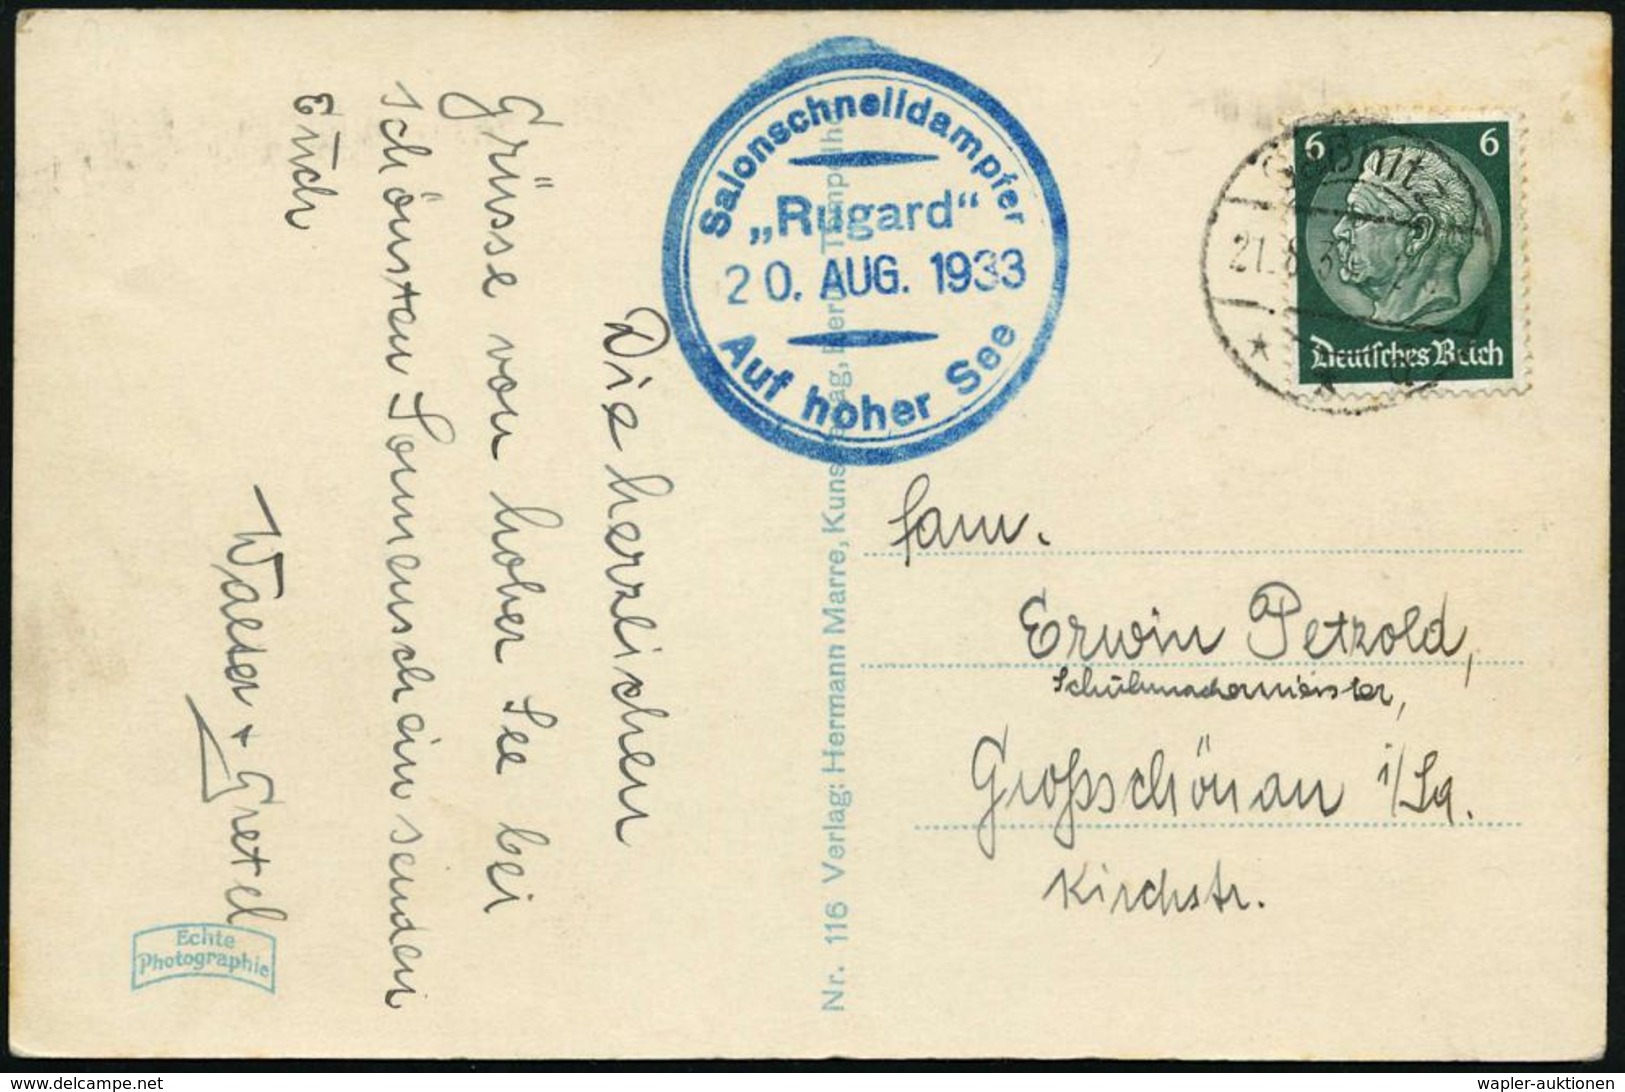 Die herzlichen
Grüsse von hoher See bei
schönsten Sonnenschein sendet
Euch
Walter + Gretel
Echte
Photographie
Nr. 116 Verlag: Hermann Marre, Kunstverlag, Berlin-Tempelhof
Salonschnelldampfer
„Rugard“
20. AUG. 1933
Auf hoher See
6 6
Deutsches Reich
21.8.33
Fam.
Erwin Petzold,
Schuhmachermeister,
Großschönau i/Sa.
Kirchstr.
wapler-auktionen